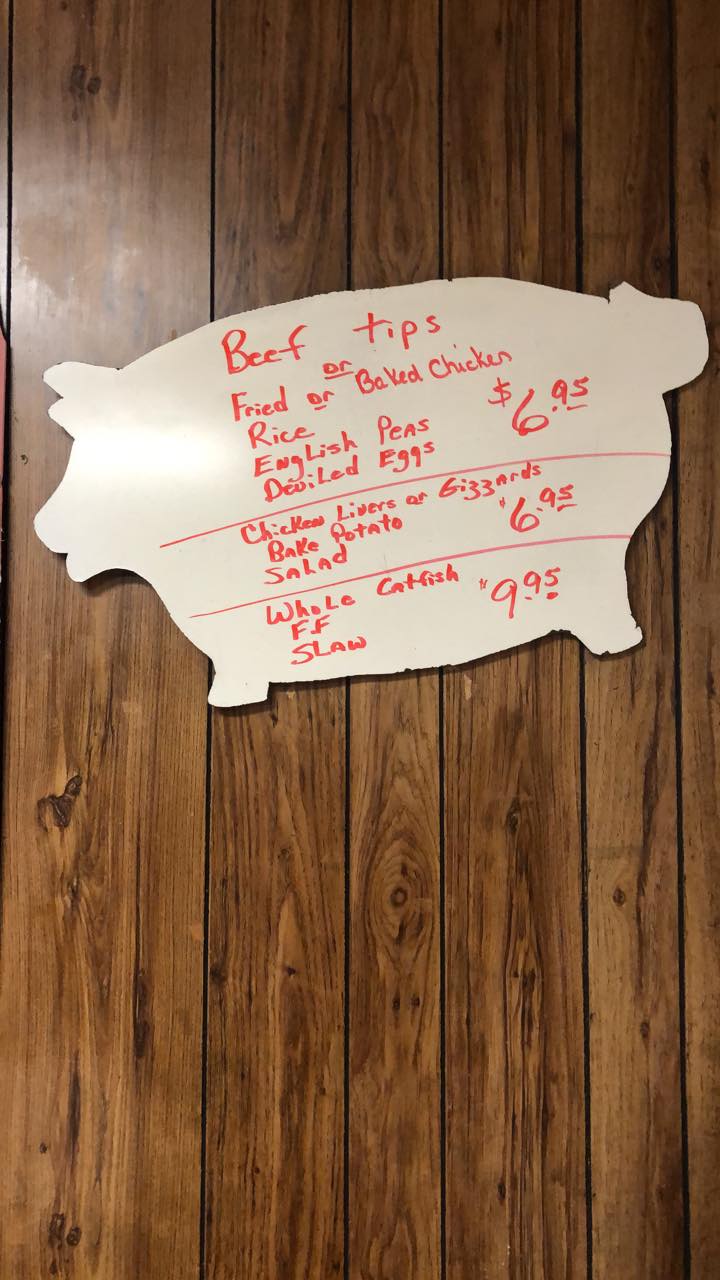 Beef tips
or
Fried or Baked Chicken
Rice $6.95
English Peas
Deviled Eggs
Chicken Livers or Gizzards
Bake Potato $6.95
Salad
Whole Catfish $9.95
F.F
SLaw